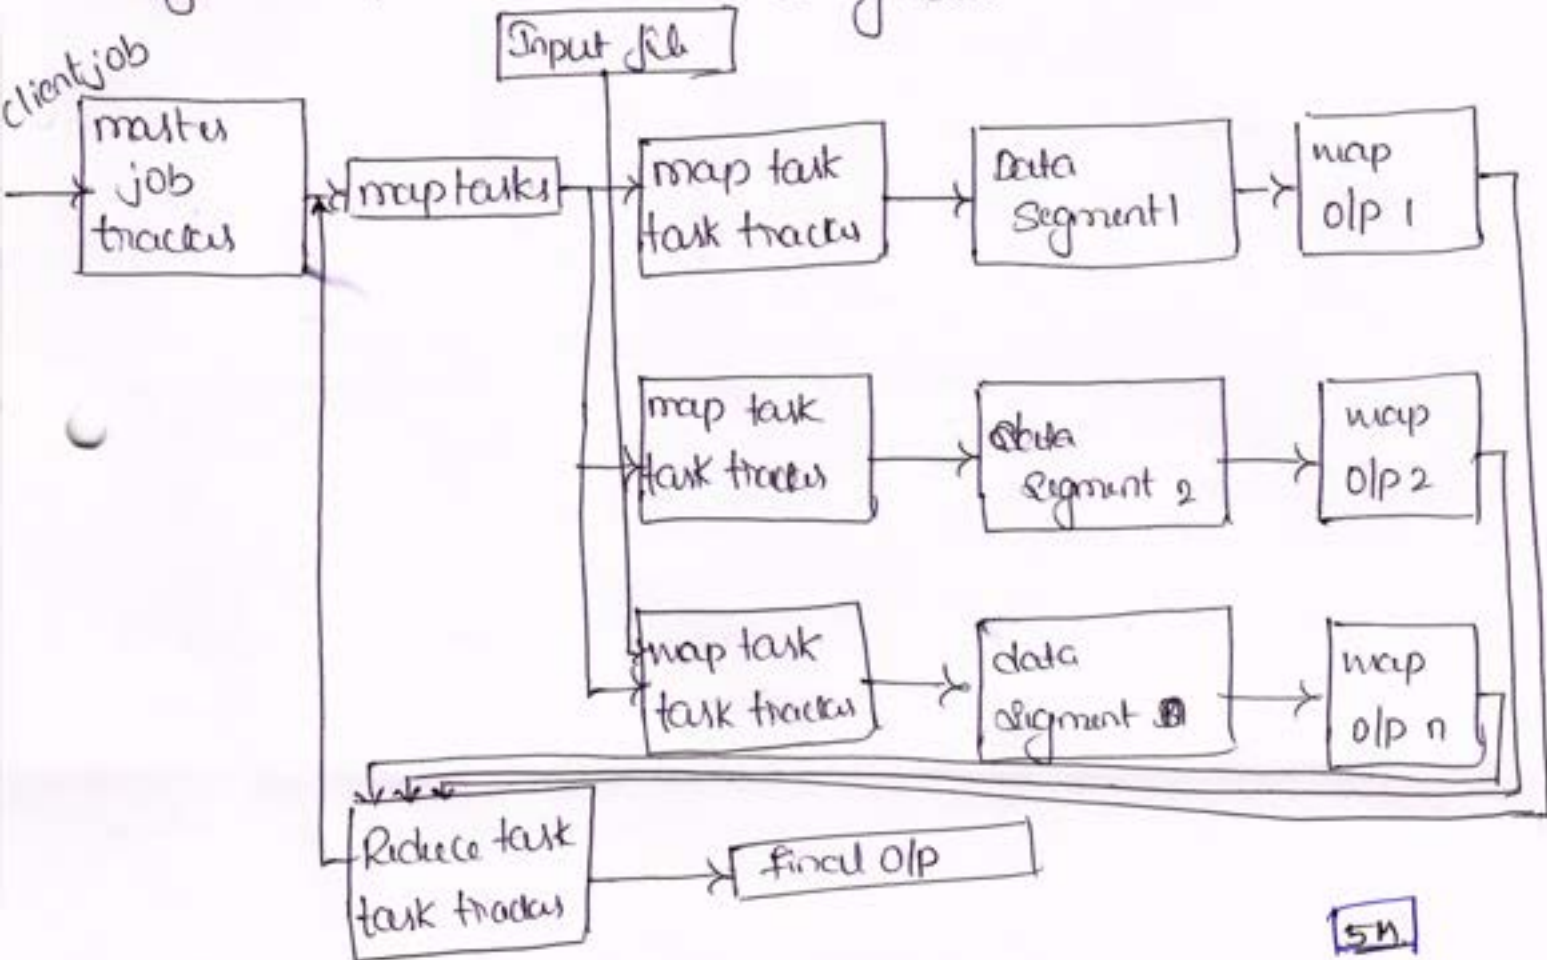 Input file
client job
master
job
tracker
map tasks
map task
task tracker
Data
Segment 1
map
O/P 1
map task
task tracker
data
segment 2
map
O/P 2
map task
task tracker
data
segment n
map
O/P n
Reduce task
task tracker
final O/P
5M